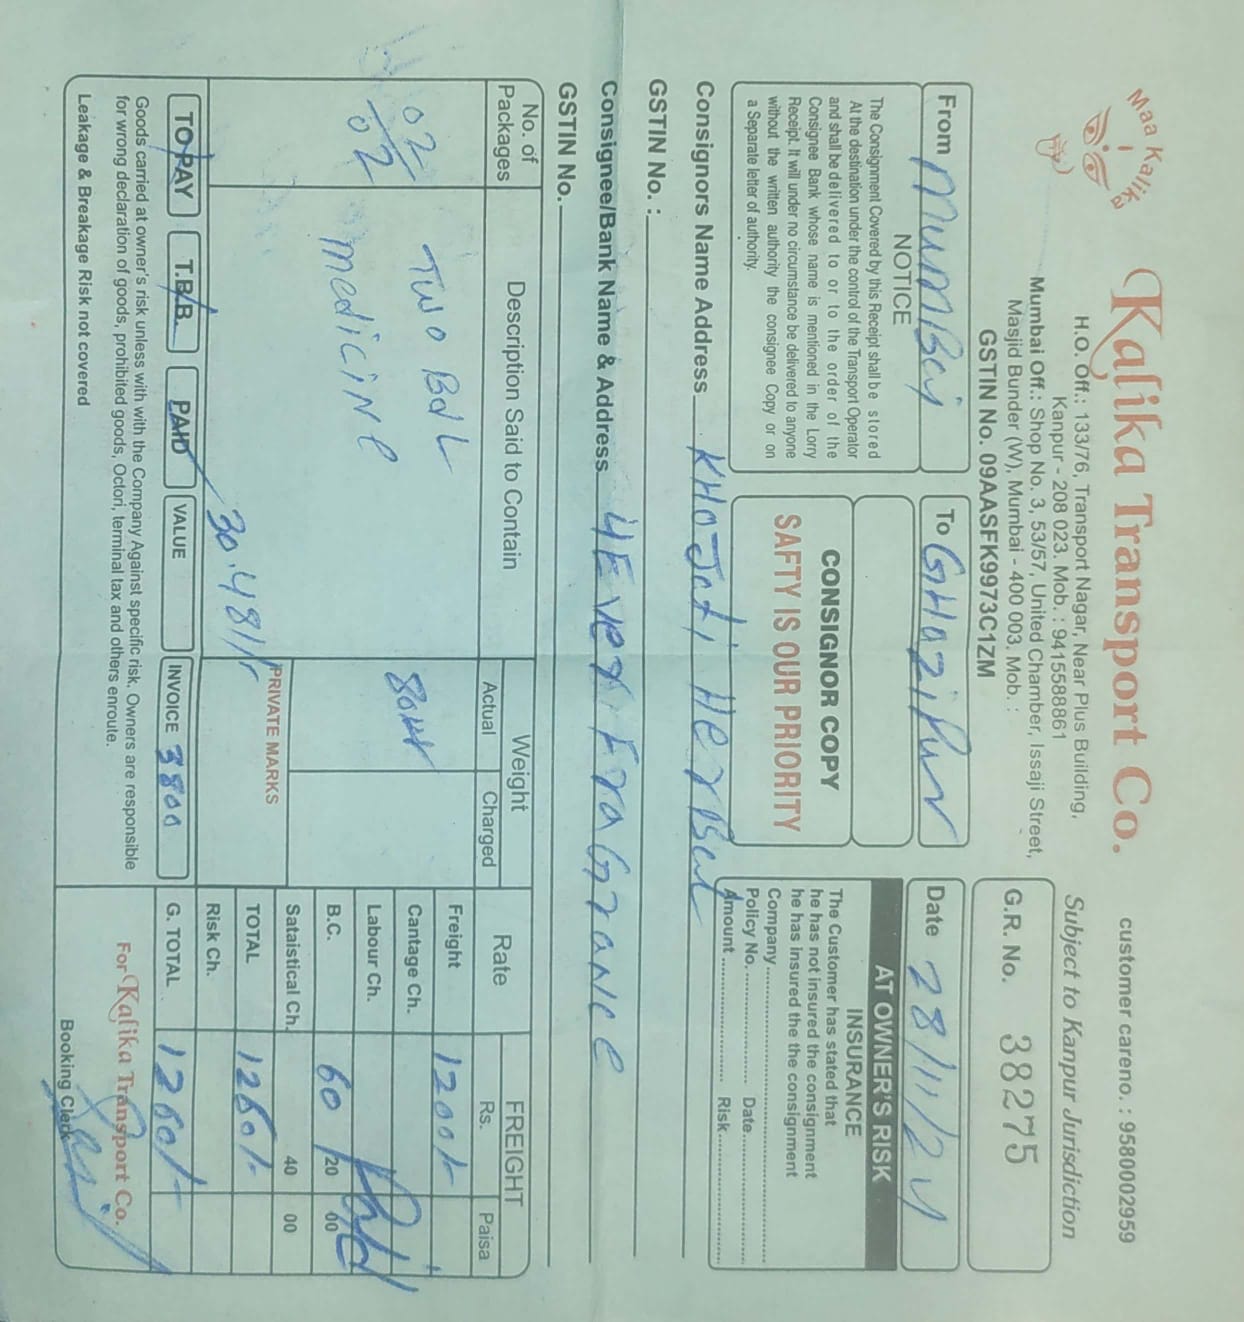 Maa Kalika
Kalika Transport Co.
customer careno. : 9580002959
H.O. Off.: 133/76, Transport Nagar, Near Plus Building,
Kanpur - 208 023. Mob. : 9415588861
Subject to Kanpur Jurisdiction
Mumbai Off.: Shop No. 3, 53/57, United Chamber, Issaji Street,
Masjid Bunder (W), Mumbai - 400 003. Mob. :
GSTIN No. 09AASFK9973C1ZM
G.R. No. 38275
From MumBai
To GHaziPur
Date 28/11/24
NOTICE
The Consignment Covered by this Receipt shall be stored
At the destination under the control of the Transport Operator
and shall be delivered to or to the order of the
Consignee Bank whose name is mentioned in the Lorry
Receipt. It will under no circumstance be delivered to anyone
without the written authority the consignee Copy or on
a Separate letter of authority.
CONSIGNOR COPY
SAFTY IS OUR PRIORITY
AT OWNER'S RISK
INSURANCE
The Customer has stated that
he has not insured the consignment
he has insured the the consignment
Company
Policy No. Date
Amount Risk
Consignors Name Address KHOJati HerBal
GSTIN No. :
Consignee/Bank Name & Address 4Ever FraGrance
GSTIN No.
No. of Packages
Description Said to Contain
Weight
Actual
Charged
Rate
FREIGHT
Rs.
Paisa
02/02
Two Bdl
medicine
80
Freight 1200/-
Cantage Ch.
Labour Ch.
B.C. 60 20 00
Paid
Sataistical Ch. 40 00
TOTAL 1260/-
Risk Ch.
G. TOTAL 1260/-
PRIVATE MARKS
30.481/-
TO PAY
T.B.B.
PAID
VALUE
INVOICE 3800
Goods carried at owner's risk unless with with the Company Against specific risk. Owners are responsible
for wrong declaration of goods, prohibited goods, Octori, terminal tax and others enroute.
Leakage & Breakage Risk not covered
For Kalika Transport Co.
Booking Clerk